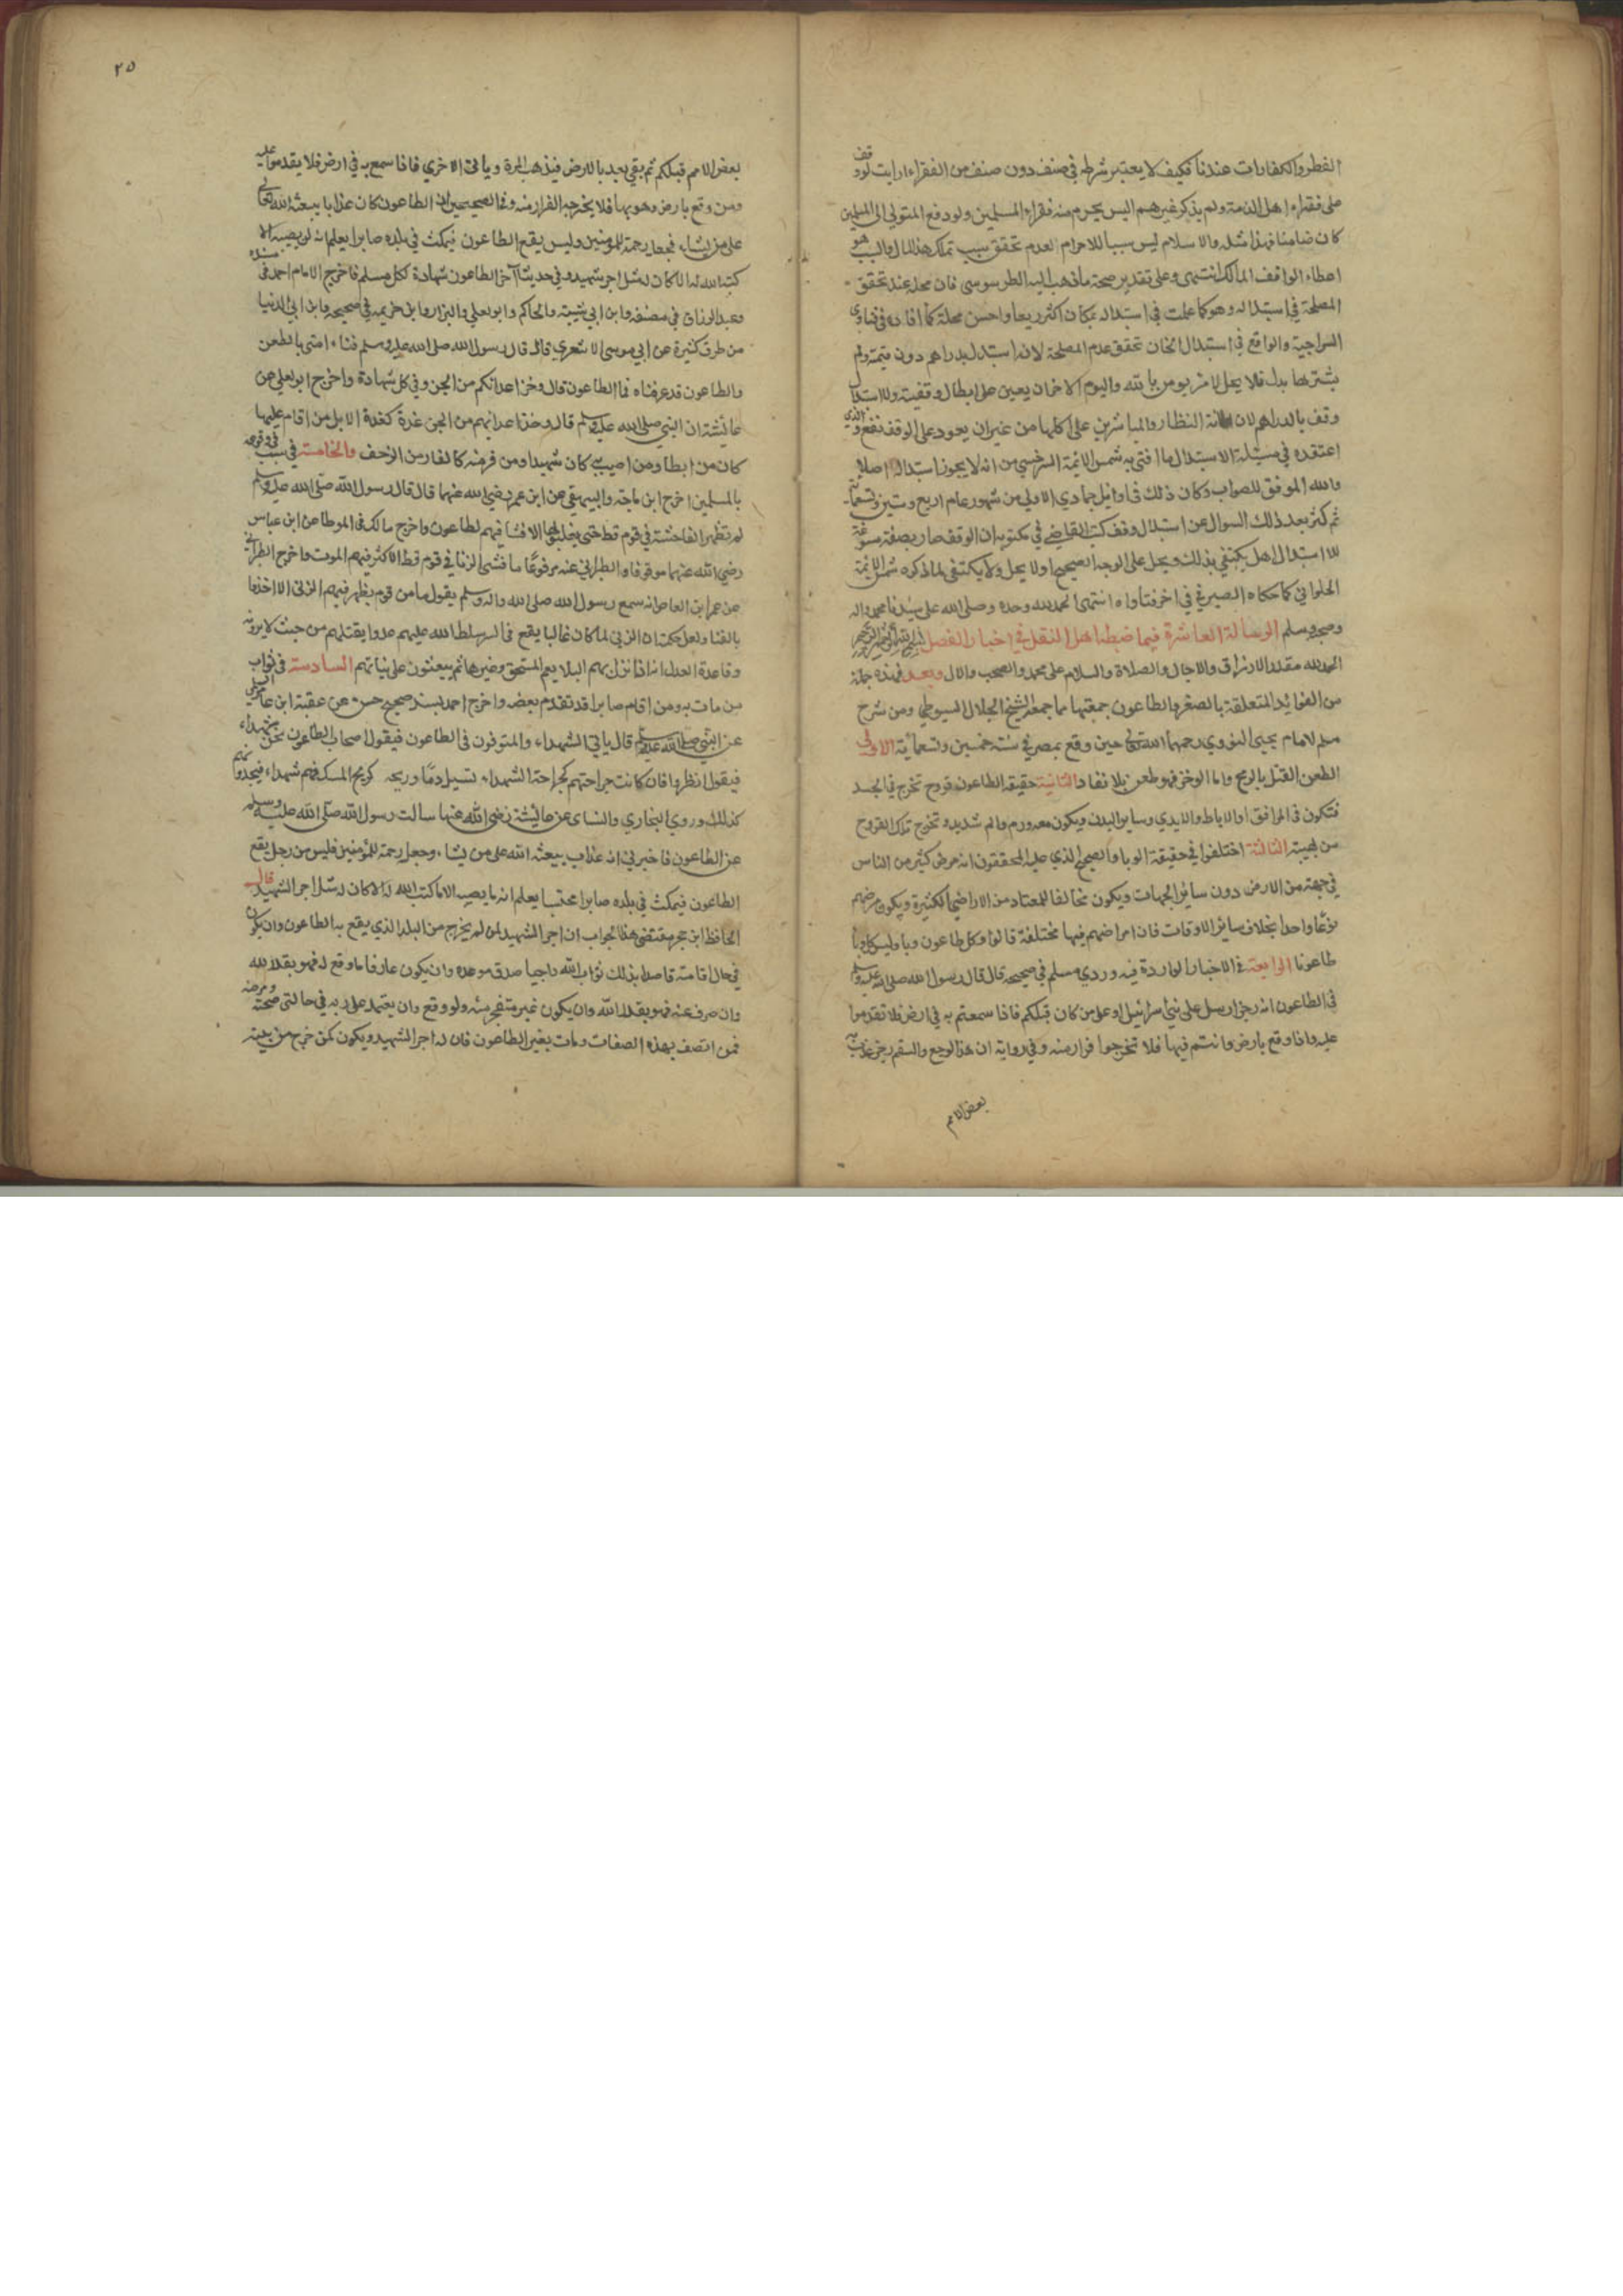 الفطر والكفارات عندنا فكيف لا يعتبر شرطه في صنف دون صنف من الفقراء ارايت لو وقف
على فقراء اهل الذمة ولم يذكر غيرهم اليس يحرم منه فقراء المسلمين ولو دفع المتولي الى المسلمين
كان ضامنا فهذا مثله والاسلام ليس سببا للاحرام لعدم تحقق سبب تملك هذا المال والسبب هو
اعطاء الواقف المالك انتهى وعلى تقدير صحة ما ذهب اليه الطرسوسي فان محله عند تحقق
المصلحة في استبداله وهو كما علمت في استبداله بمكان اكثر ريعا واحسن محلة كما افاده في فتاوى
السراجية والواقع في استبدال الخان تحقق عدم المصلحة لانه استبدل بدراهم دون قيمته ولم
يشتر بها بدل فلا يحل لامرء يومن بالله واليوم الاخر ان يعين على ابطال وقفيته وللاستبدال
وقف بالدراهم لان النظار والمباشرين على اكلها من غير ان يعود على الوقف نفع والذي
اعتقده في مسئلة الاستبدال ما افتى به شمس الائمة السرخسي من انه لا يجوز استبداله اصلا
والله الموفق للصواب وكان ذلك في اوائل جمادي الاولى من شهور عام اربع وستين وتسعمائة
ثم كثر بعد ذلك السوال عن استبدال وقف كتب القاضي في مكتوبه ان الوقف صار بصفة مسوغة
للاستبدال هل يكتفي بذلك ويحل على الوجه الصحيح او لا يحل ولا يكتفى لما ذكره شمس الائمة
الحلواني كما حكاه الصيرفي في اخر فتاواه انتهى الحمد لله وحده وصلى الله على سيدنا محمد واله
وصحبه وسلم الرسالة العاشرة فيما ضبطه اهل النقل في اخبار الفصل بسم الله الرحمن الرحيم
الحمد لله مقدر الارزاق والاجال والصلاة والسلام على محمد والصحب والال وبعد فهذه جملة
من الفوائد المتعلقة بالطاعون جمعتها مما جمعه الشيخ الجلال السيوطي ومن شرح
مسلم للامام يحيى النووي رحمهما الله تعالى حين وقع بمصر في سنة خمسين وتسعمائة الاولى
الطعن القتل بالرمح واما الوخز فهو طعن بلا نفاد الثانية حقيقة الطاعون قروح تخرج في الجسد
فتكون في المرافق او الاباط والايدي وساير البدن ويكون معه ورم والم شديد وتخرج تلك القروح
من لهيبة الثالثة اختلفوا في حقيقة الوبا والصحيح الذي عليه المحققون انه مرض كثير من الناس
في جهة من الارض دون سائر الجهات ويكون مخالفا للمعتاد من الامراض في الكثيرة ويكون مرضهم
نوعا واحدا بخلاف سائر الاوقات فان امراضهم فيها مختلفة قالوا وكل طاعون وبا وليس كل وبا
طاعونا الرابعة في الاخبار الواردة فيه وروي مسلم في صحيحه قال قال رسول الله صلى الله عليه وسلم
في الطاعون انه رجز ارسل على بني اسرائيل او على من كان قبلكم فاذا سمعتم به في ارض فلا تقدموا
عليه واذا وقع بارض وانتم فيها فلا تخرجوا فرارا منه وفي رواية ان هذا الوجع والسقم رجز عذب به
بعض الامم
٢٥
بعض الامم قبلكم ثم بقي بعد بالارض فيذهب المرة وياتي الاخري فاذا سمع به في ارض فلا يقدموا عليه
ومن وقع بارض وهو بها فلا يخرجه الفرار منه وفي الصحيحين ان الطاعون كان عذابا يبعثه الله تعالى
على من يشاء فجعله رحمة للمومنين وليس يقع الطاعون فيمكث في بلده صابرا يعلم انه لن يصيبه الا
كتب الله له الا كان له مثل اجر شهيد وفي حديث آخر الطاعون شهادة لكل مسلم فاخرج الامام احمد في مسنده
وعبد الرزاق في مصنفه وابن ابي شيبة والحاكم وابو يعلي والبزار وابن خزيمة في صحيحه وابن ابي الدنيا
من طرق كثيرة عن ابي موسى الاشعري قال قال رسول الله صلى الله عليه وسلم فناء امتي بالطعن
والطاعون قد عرفناه فما الطاعون قال وخز اعدائكم من الجن وفي كل شهادة واخرج ابو يعلي عن
عائشة ان النبي صلى الله عليه وسلم قال وخذ اعدائهم من الجن غدة كغدة الابل من اقام عليها
كان من ابطا ومن اصيب به كان شهيدا ومن فر منه كالفار من الزحف والخامسة في سبب وقوعه
بالمسلمين اخرج ابن ماجة والبيهقي عن ابن عمر رضي الله عنهما قال قال رسول الله صلى الله عليه وسلم
لم تظهر الفاحشة في قوم قط حتى يعلنوا بها الا فشا فيهم لطاعون واخرج مالك في الموطا عن ابن عباس
رضي الله عنهما موقوفا والطبراني عنه مرفوعا ما فشى الزنا في قوم قط الا كثر فيهم الموت واخرج الطبراني
عن عمر ابن العاص انه سمع رسول الله صلى الله واله وسلم يقول ما من قوم يظهر فيهم الزنى الا اخذوا
بالفنا ولعل حكمته ان الزنى لما كان غالبا يقع في السر سلط الله عليهم عدوا يقتلهم من حيث لا يرونه
وقاعدة العدل انه اذا نزل بهم البلا يعم المستحق وغيره ثم يبعثون على نياتهم السادسة في ثواب
من مات به ومن اقام صابرا قد تقدم بعضه واخرج احمد بسند صحيح حسن عن عقبة ابن عامر السلمي
عن النبي صلى الله عليه وسلم قال ياتي الشهداء والمتوفون في الطاعون فيقول اصحاب الطاعون نحن شهداء
فيقول انظروا فان كانت جراحتهم كجراحة الشهداء تسيل دما وريحه كريح المسك فهم شهداء فيجدونهم
كذلك وروي البخاري والنساى عن عائشة رضي الله عنها سالت رسول الله صلى الله عليه وسلم
عن الطاعون فاخبرني انه عذاب يبعثه الله على من يشاء وجعله رحمة للمؤمنين فليس من رجل يقع
الطاعون فيمكث في بلده صابرا محتسبا يعلم انه ما يصيبه الا ما كتب الله له الا كان له مثل اجر الشهيد قال
الحافظ ابن حجر مقتضى هذا الجواب ان اجر الشهيد لمن لم يخرج من البلد الذي يقع به الطاعون وان يكون
في حال اقامته قاصدا بذلك ثواب الله راجيا صدق موعده وان يكون عارفا ما وقع له فهو بقدر الله
وان صرف عنه فهو بقدر الله وان يكون غير متضجر منه ولو وقع وان يعتمد على ربه في حالتي صحته ومرضه
فمن اتصف بهذه الصفات ومات بغير الطاعون فان له اجر الشهيد ويكون كمن خرج من بيته